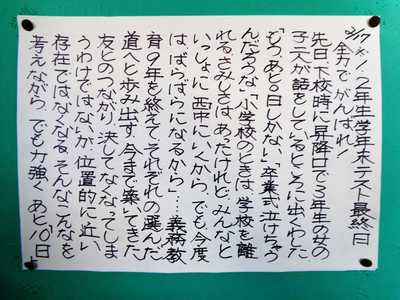 2/17(火)! 2年生学年末テスト最終日
全力で がんばれ!
先日、下校時に昇降口で3年生の女の
子二人が話をしているところに出くわした
「もう、あと○日しかない」「卒業式泣けちゃう
んだろうな」「小学校のときは、学校を離
れるさみしさはあったけれど、みんなと
いっしょに西中にいくから。でも今度
は、ばらばらになるから」…義務教
育の9年を終えて、それぞれの選んだ
道へと歩み出す。今まで築いてきた
友とのつながり、決してなくなってしま
うわけではないが、位置的に近い
存在ではなくなる。そんなこんなを
考えながら、でも力強く あと「10日」